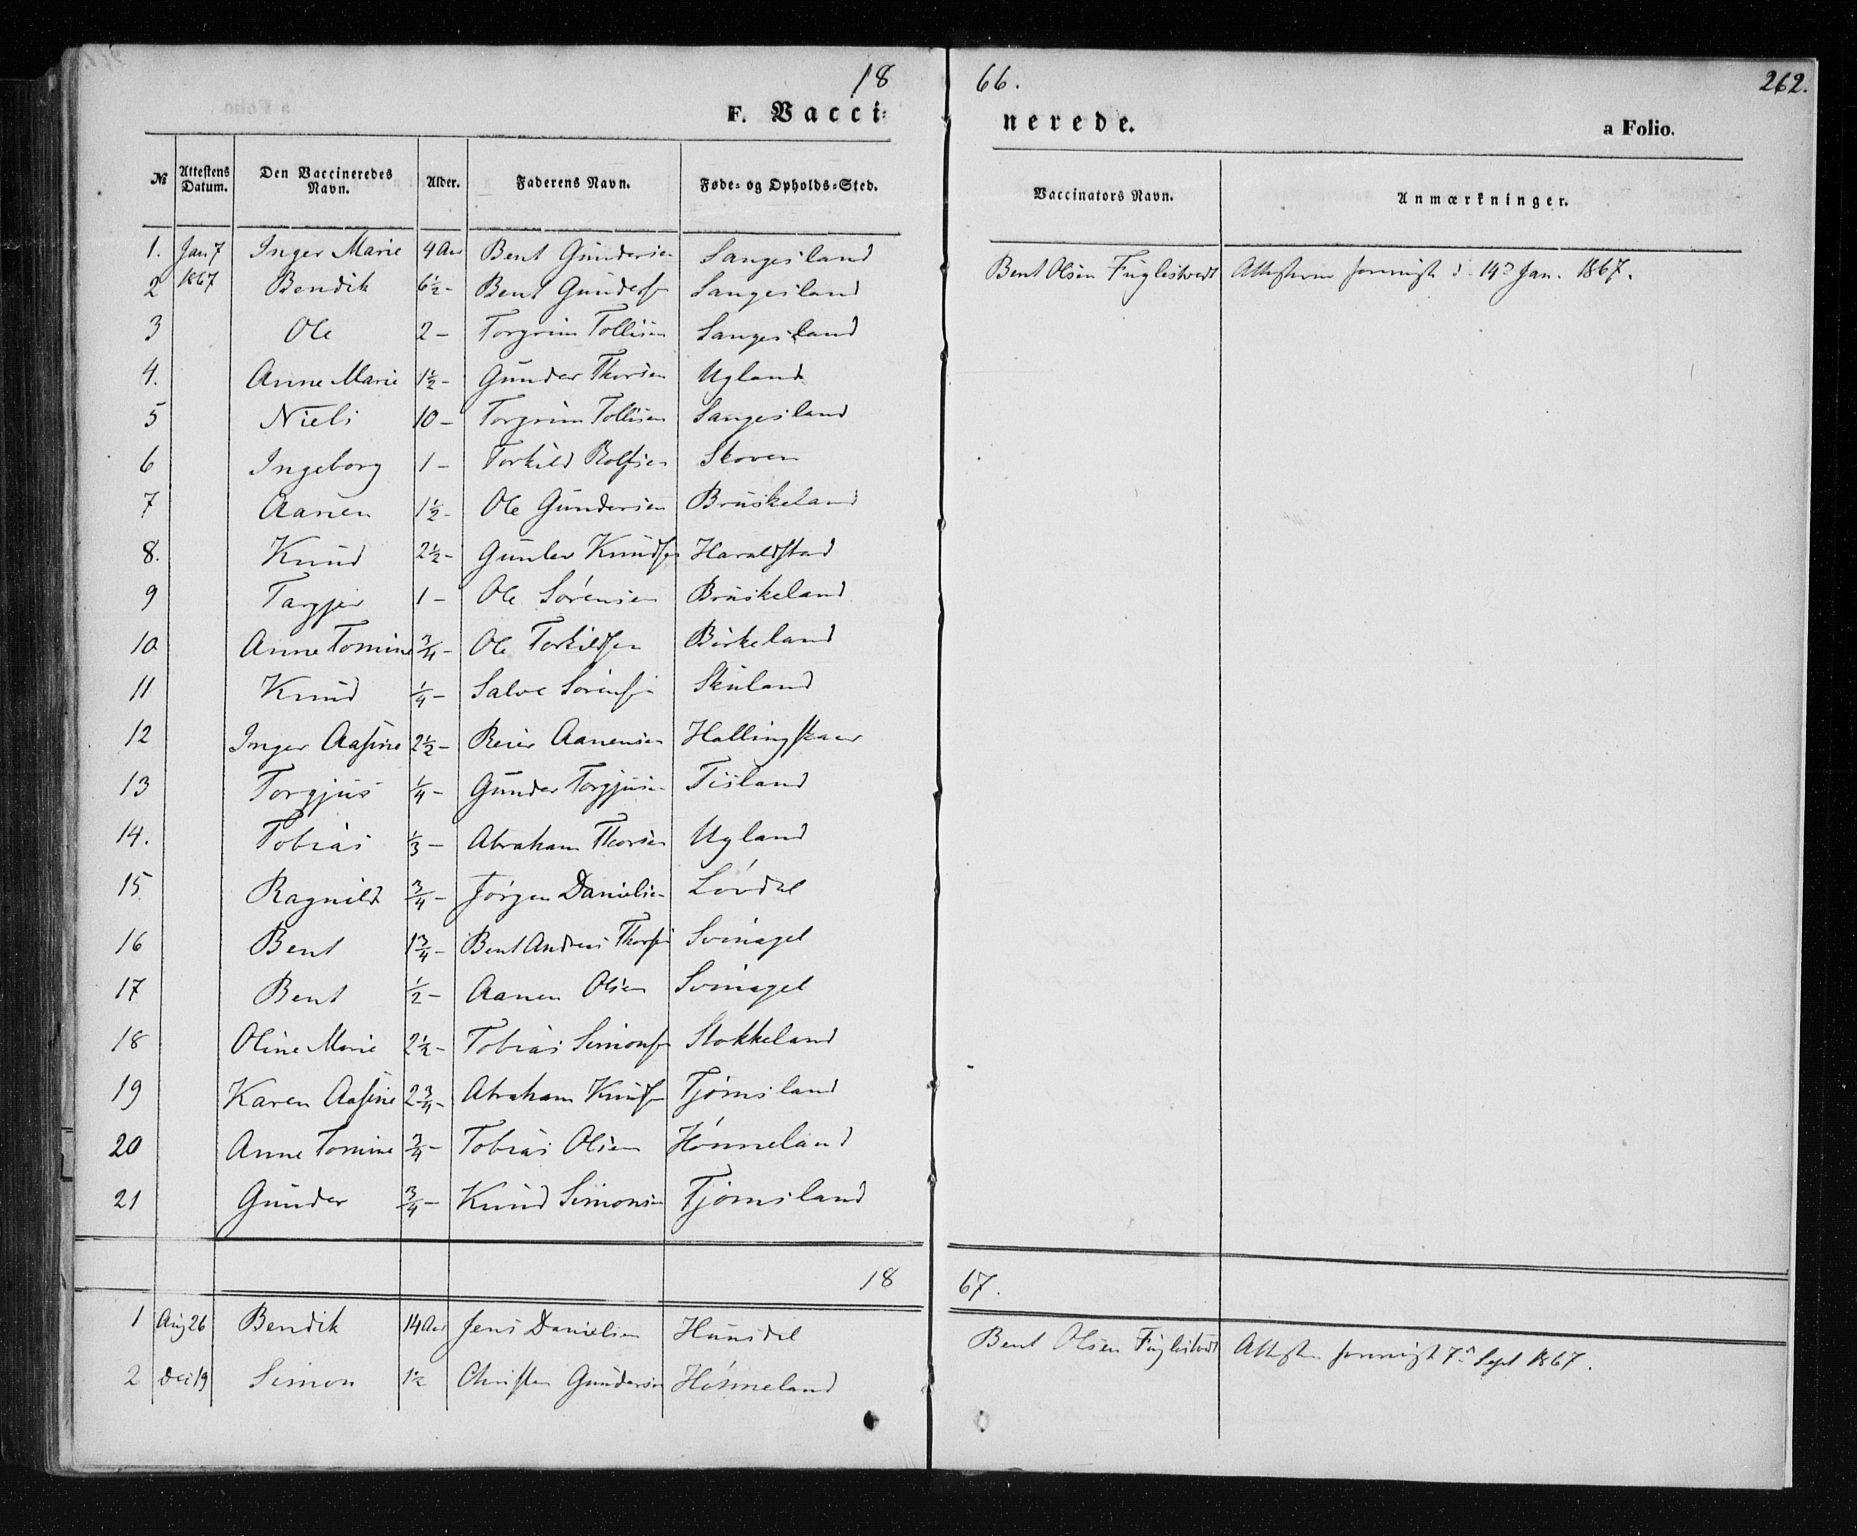 18 66. 262.
F. Vacci-nerede. a Folio.
№ Attestens Datum. Den Vaccineredes Navn. Alder. Faderens Navn. Føde- og Opholds-Sted. Vaccinators Navn. Anmærkninger.
1. Jan 7 Inger Marie 4 Aar Bent Gundersen Sangesland
2 1867 Bendik 6½ - Bent Gunders. Sangesland Bent Olsen Fuglestvedt 14de Jan. 1867.
3 Ole 2 - Torgrim Tollisen Sangesland
4. Anne Marie 1½ - Gunder Thorsen Ugland
5 Niels 10 - Torgrim Tollisen Sangesland
6 Ingeborg 1 - Torkild Rolfsen Skoven
7 Aanen 1½ - Ole Gundersen Bruskeland
8. Knud 2½ - Gunler Knudsen Haraldstad
9 Targjer 1 - Ole Sørensen Bruskeland
10 Anne Tomine ¾ - Ole Torkildsen Birkeland
11 Knud ¼ - Salve Sørens. Skuland
12 Inger Aasine 2½ - Reier Aanensen Hallingskaar
13 Torgjus ¼ - Gunder Torgjusen Tisland
14. Tobias ⅓ - Abraham Thorsen Ugland
15 Ragnild ¾ - Jørgen Danielsen Løvdal
16 Bent 1¾ - Bent Andreas Thorsen Svinagel
17 Bent ½ - Aanen Olsen Svinagel
18 Oline Marie 2½ - Tobias Simons. Stokkeland
19 Karen Aasine 2¾ - Abraham Knuds. Tjømsland
20 Anne Tomine ¾ - Tobias Olsen Hønneland
21 Gunder ¾ - Knud Simonsen Tjømsland
18 67.
1 Aug 26 Bendik 14 Aar Jens Danielsen Hunsdal Bent Olsen Fuglestvedt 7de Sept 1867.
2 Dec 19 Simon 1½ Christen Gundersen Hønneland